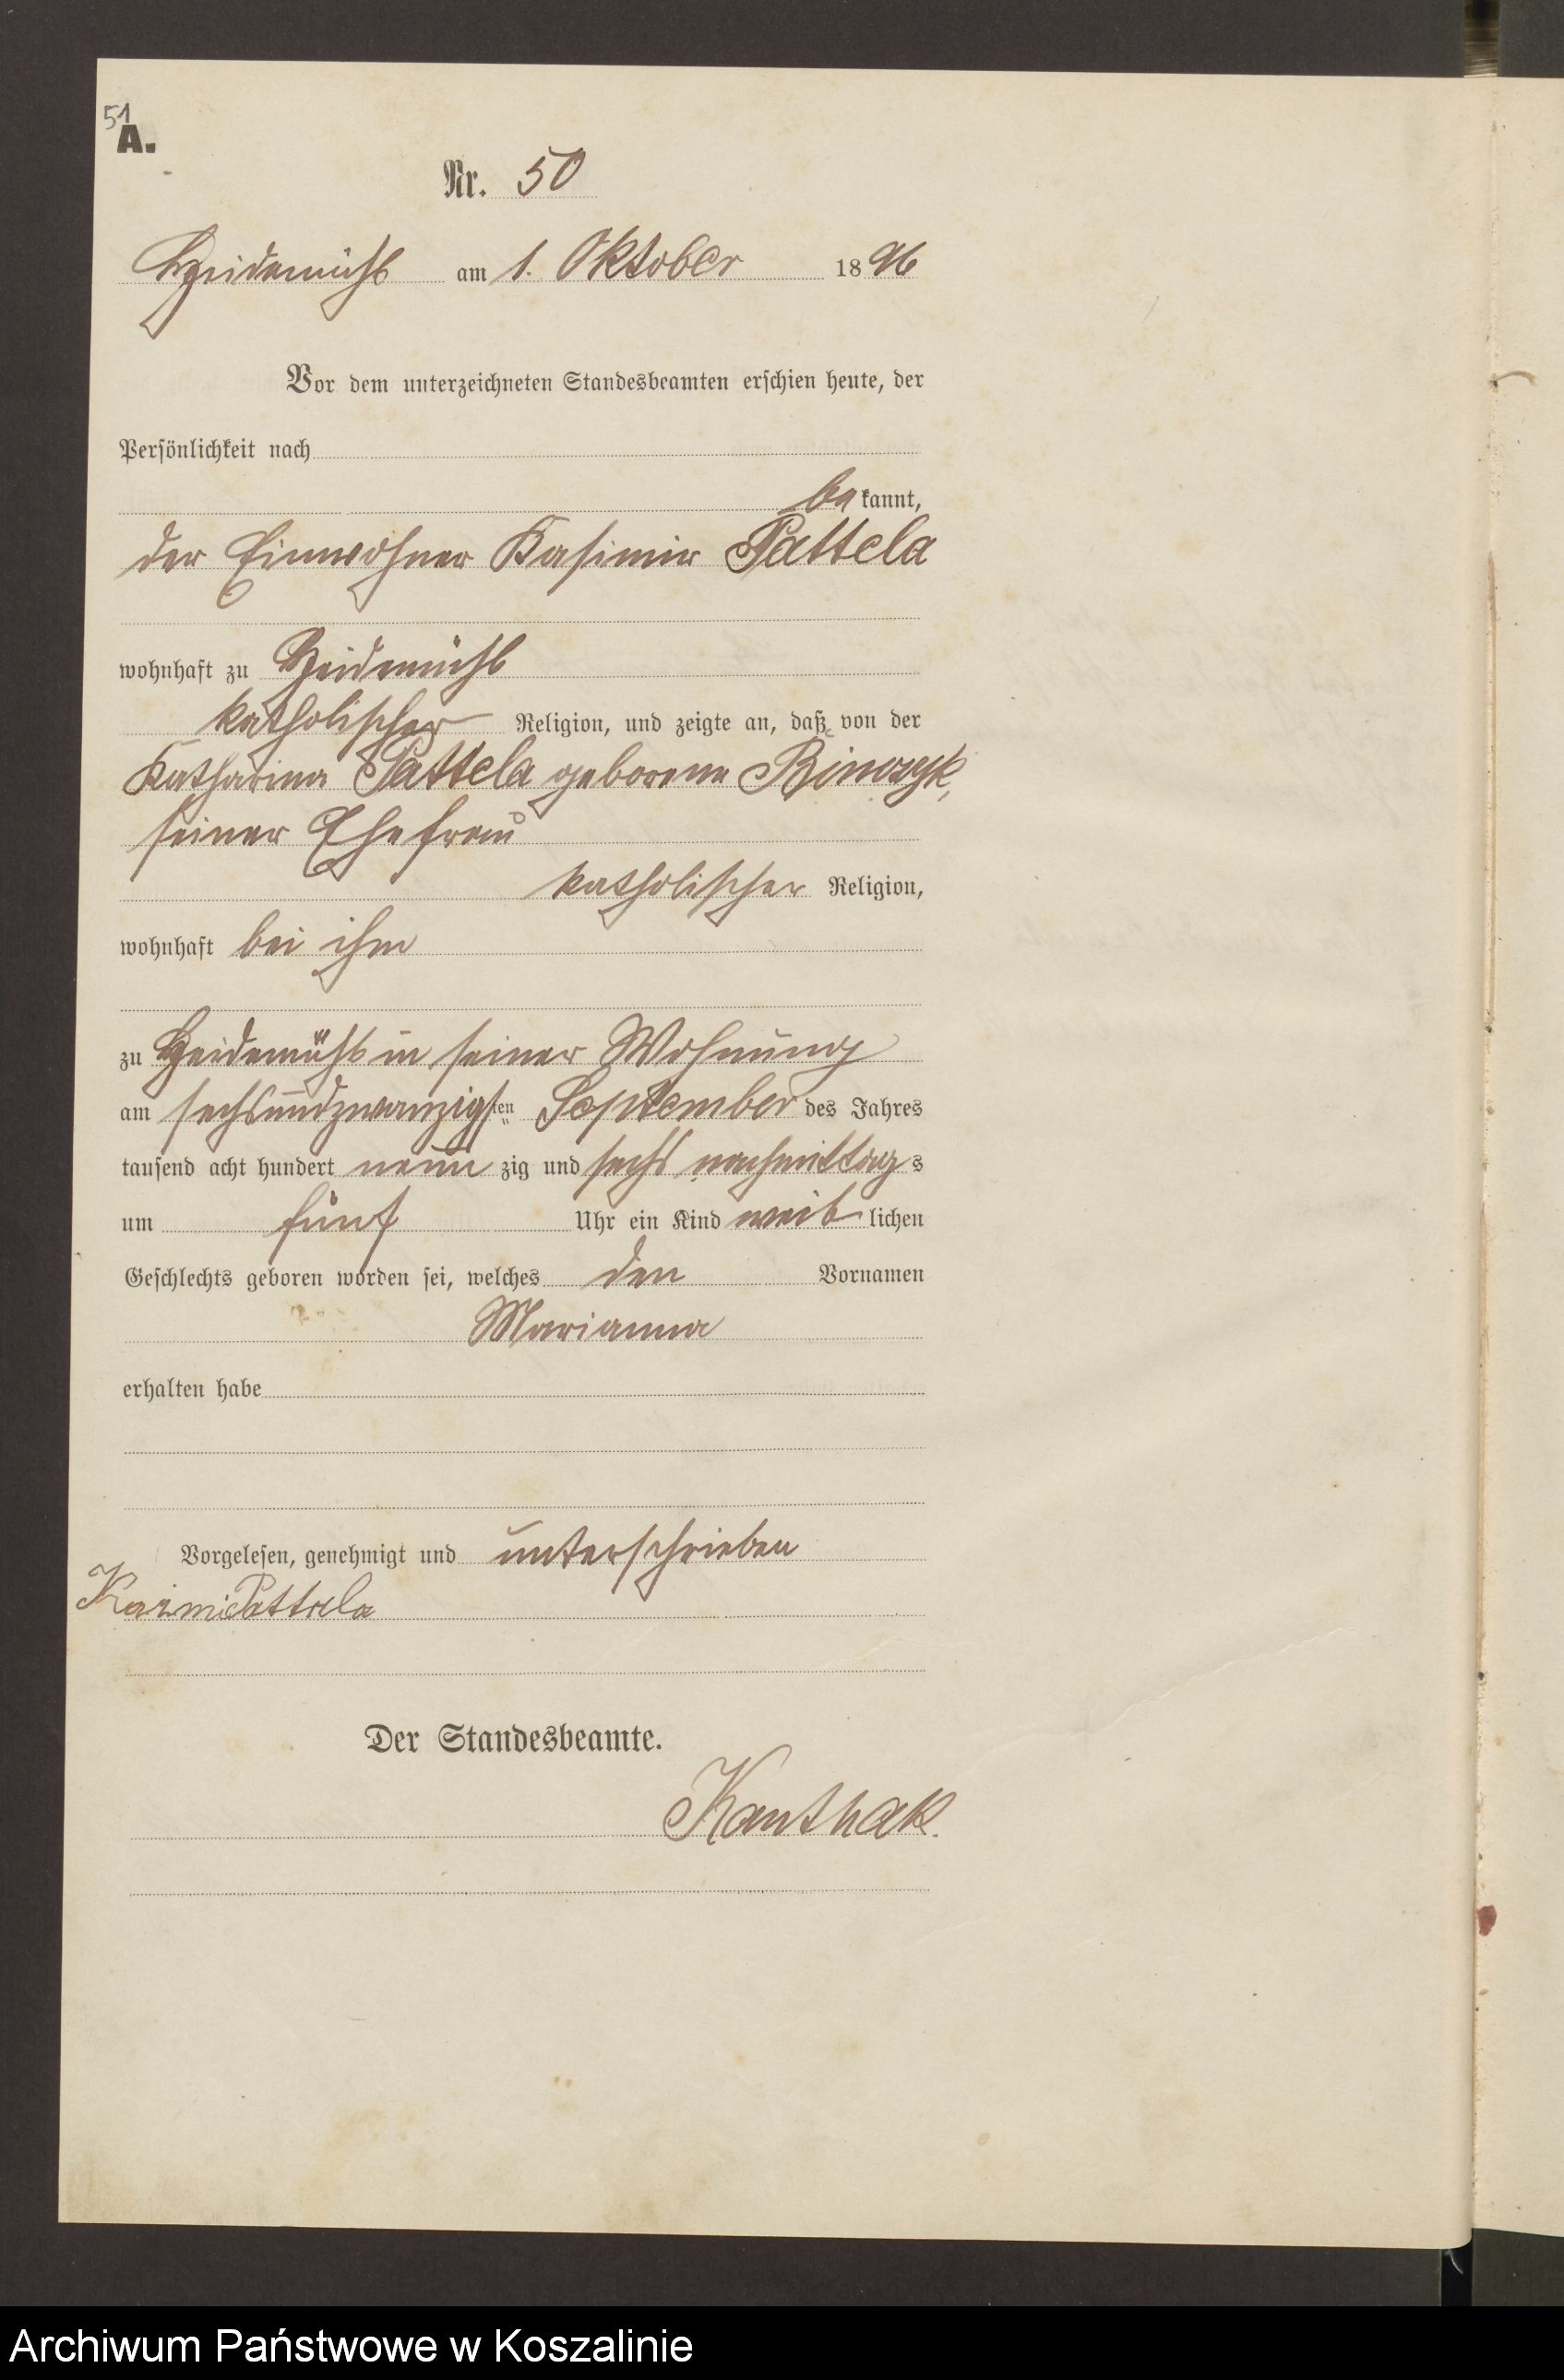 51
A.
Nr. 50
Heidemühl am 1. Oktober 1896
Vor dem unterzeichneten Standesbeamten erschien heute, der
Persönlichkeit nach
bekannt,
der Einwohner Kasimir Pattela
wohnhaft zu Heidemühl
katholischer Religion, und zeigte an, daß von der
Katharina Pattela geborene Binczyk,
seiner Ehefrau
katholischer Religion,
wohnhaft bei ihm
zu Heidemühl in seiner Wohnung
am sechsundzwanzigsten September des Jahres
tausend acht hundert neunzig und sechs nachmittags
um fünf Uhr ein Kind weiblichen
Geschlechts geboren worden sei, welches den Vornamen
Marianna
erhalten habe
Vorgelesen, genehmigt und unterschrieben
Pattela
Der Standesbeamte.
Kanthak.
Archiwum Państwowe w Koszalinie